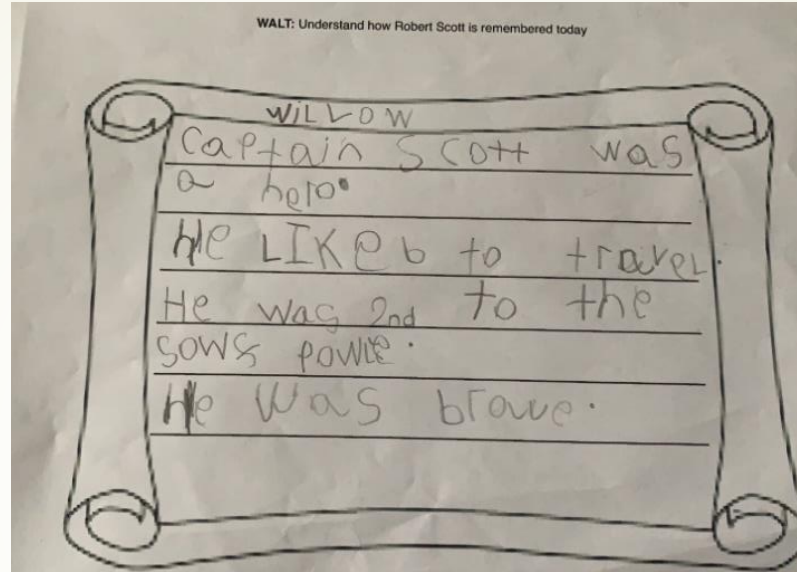 WALT: Understand how Robert Scott is remembered today
WiLLOW
Captain Scott was
a hero.
He LIKeb to travel.
He was 2nd to the
sows powle.
He was brave.